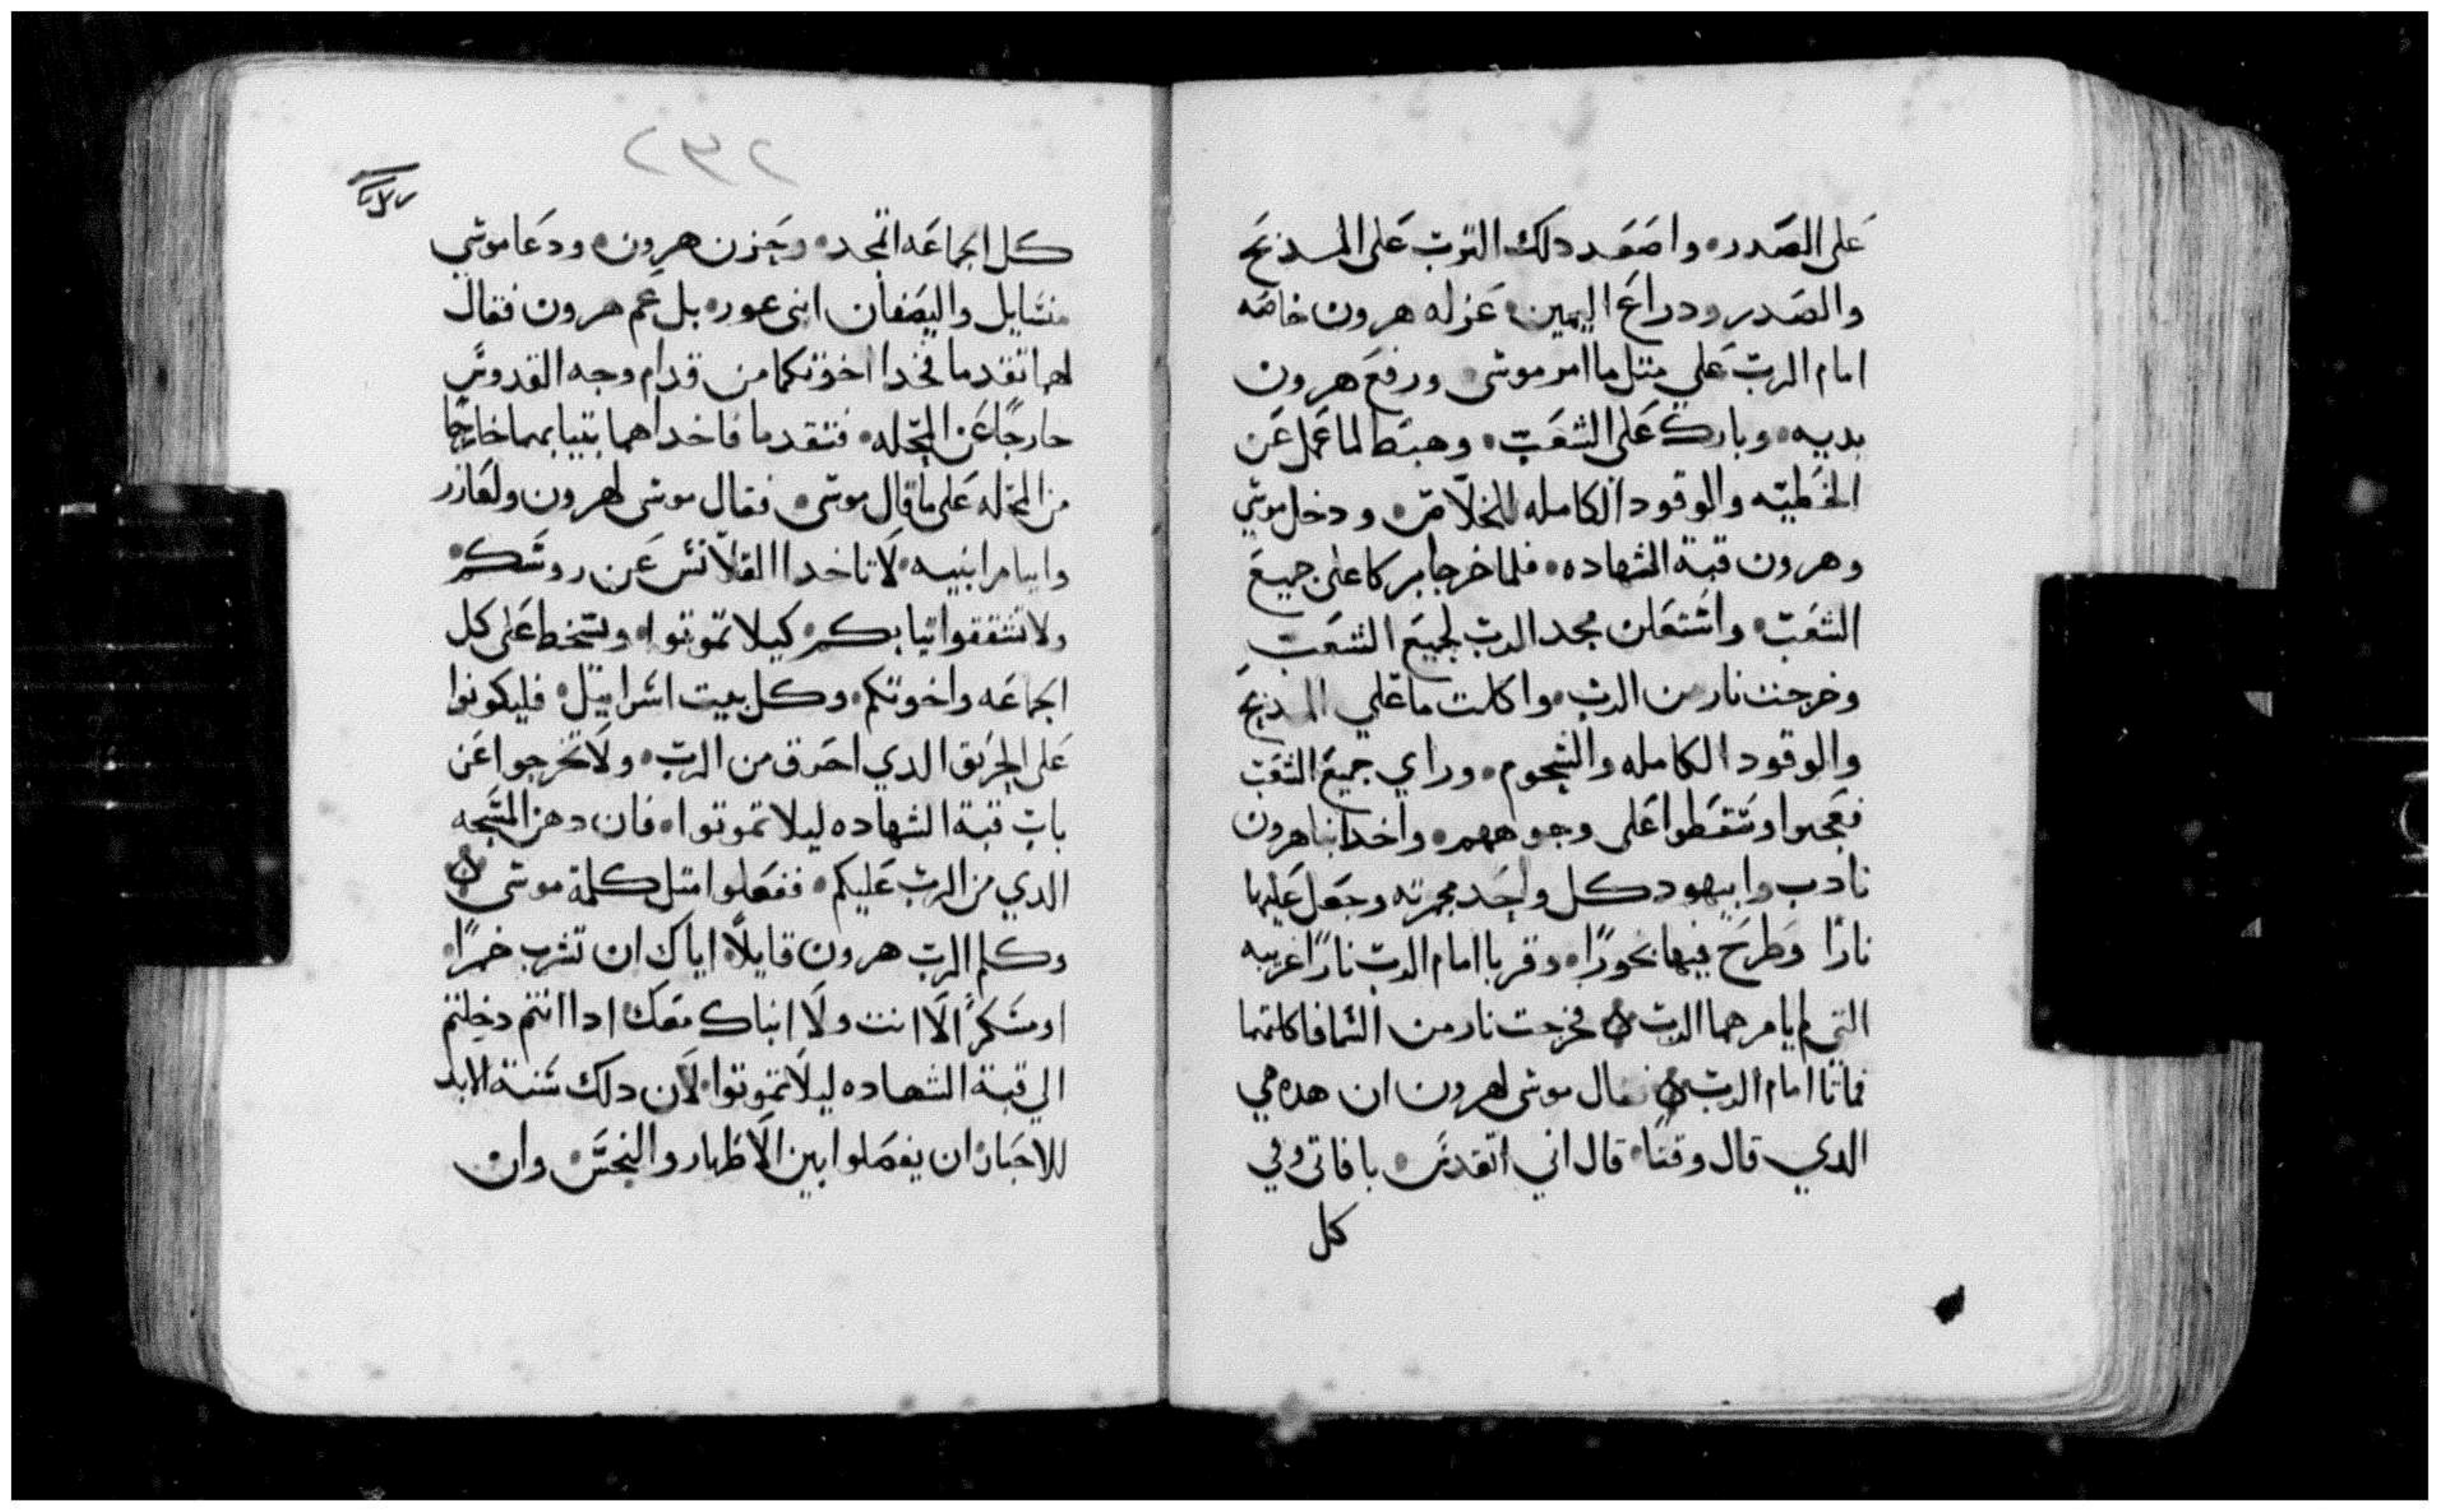 على الصدر. واصعد دلك الترب على المدبح
والصدر ودراع اليمين. عزله هرون خاصه
امام الرب علي متل ما امر موسى. ورفع هرون
يديه. وبارك على الشعب. وهبط لما عمل عن
الخطيه والوقود الكامله للخلاص. ودخل موسي
وهرون قبة الشهاده. فلما خرجا بركا على جميع
الشعب. واستعلن مجد الرب لجميع الشعب
وخرجت نار من الرب. واكلت ما علي المدبح
والوقود الكامله والشحوم. وراي جميع الشعب
فعجبوا وسقطوا على وجوههم. واخد ابنا هرون
ناداب وابيهود كل واحد مجمرته وجعل عليها
نارًا وطرح فيها بخورًا. وقربا امام الرب نارًا غريبه
التي لم يامرهما الرب ه فخرجت نار من السما فاكلتهما
فماتا امام الرب ه فقال موسى لهرون ان هده هي
الدي قال وقتًا. قال اني اتقدس. بافاتى وفي
كل
٢٣٢
كل الجماعه اتمجد. وحزن هرون. ودعا موسي
منسايل واليصفان ابنى عور. بل عم هرون فقال
لهما تقدما فخدا اخوتكما من قدام وجه القدوس
خارجًا عن المحله. فتقدما فاخداهما بتيابهما خارجًا
من المحله على ما قال موسى. فقال موسى لهرون ولعازر
وايتامر ابنيه. لا تاخدا القلانس عن روسكم.
ولا تشققوا تيابكم. كيلا تموتوا. ويسخط على كل
الجماعه واخوتكم. وكل بيت اسراييل. فليكونوا
على الحريق الدي احترق من الرب. ولا تخرجوا عن
باب قبة الشهاده ليلا تموتوا. فان دهن المسحه
الدي من الرب عليكم. ففعلوا متل كلمة موسى ه
وكلم الرب هرون قايلًا. اياك ان تشرب خمرًا.
او مسكرًا لا انت ولا ابناك معك. ادا انتم دخلتم
الي قبة الشهاده ليلا تموتوا. لان دلك سنة الابد
للاحبار. ان يفصلوا بين الاطهار والنجس. وان